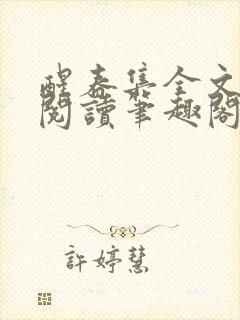 醒春集全文
閱讀筆趣閣
許婷慧